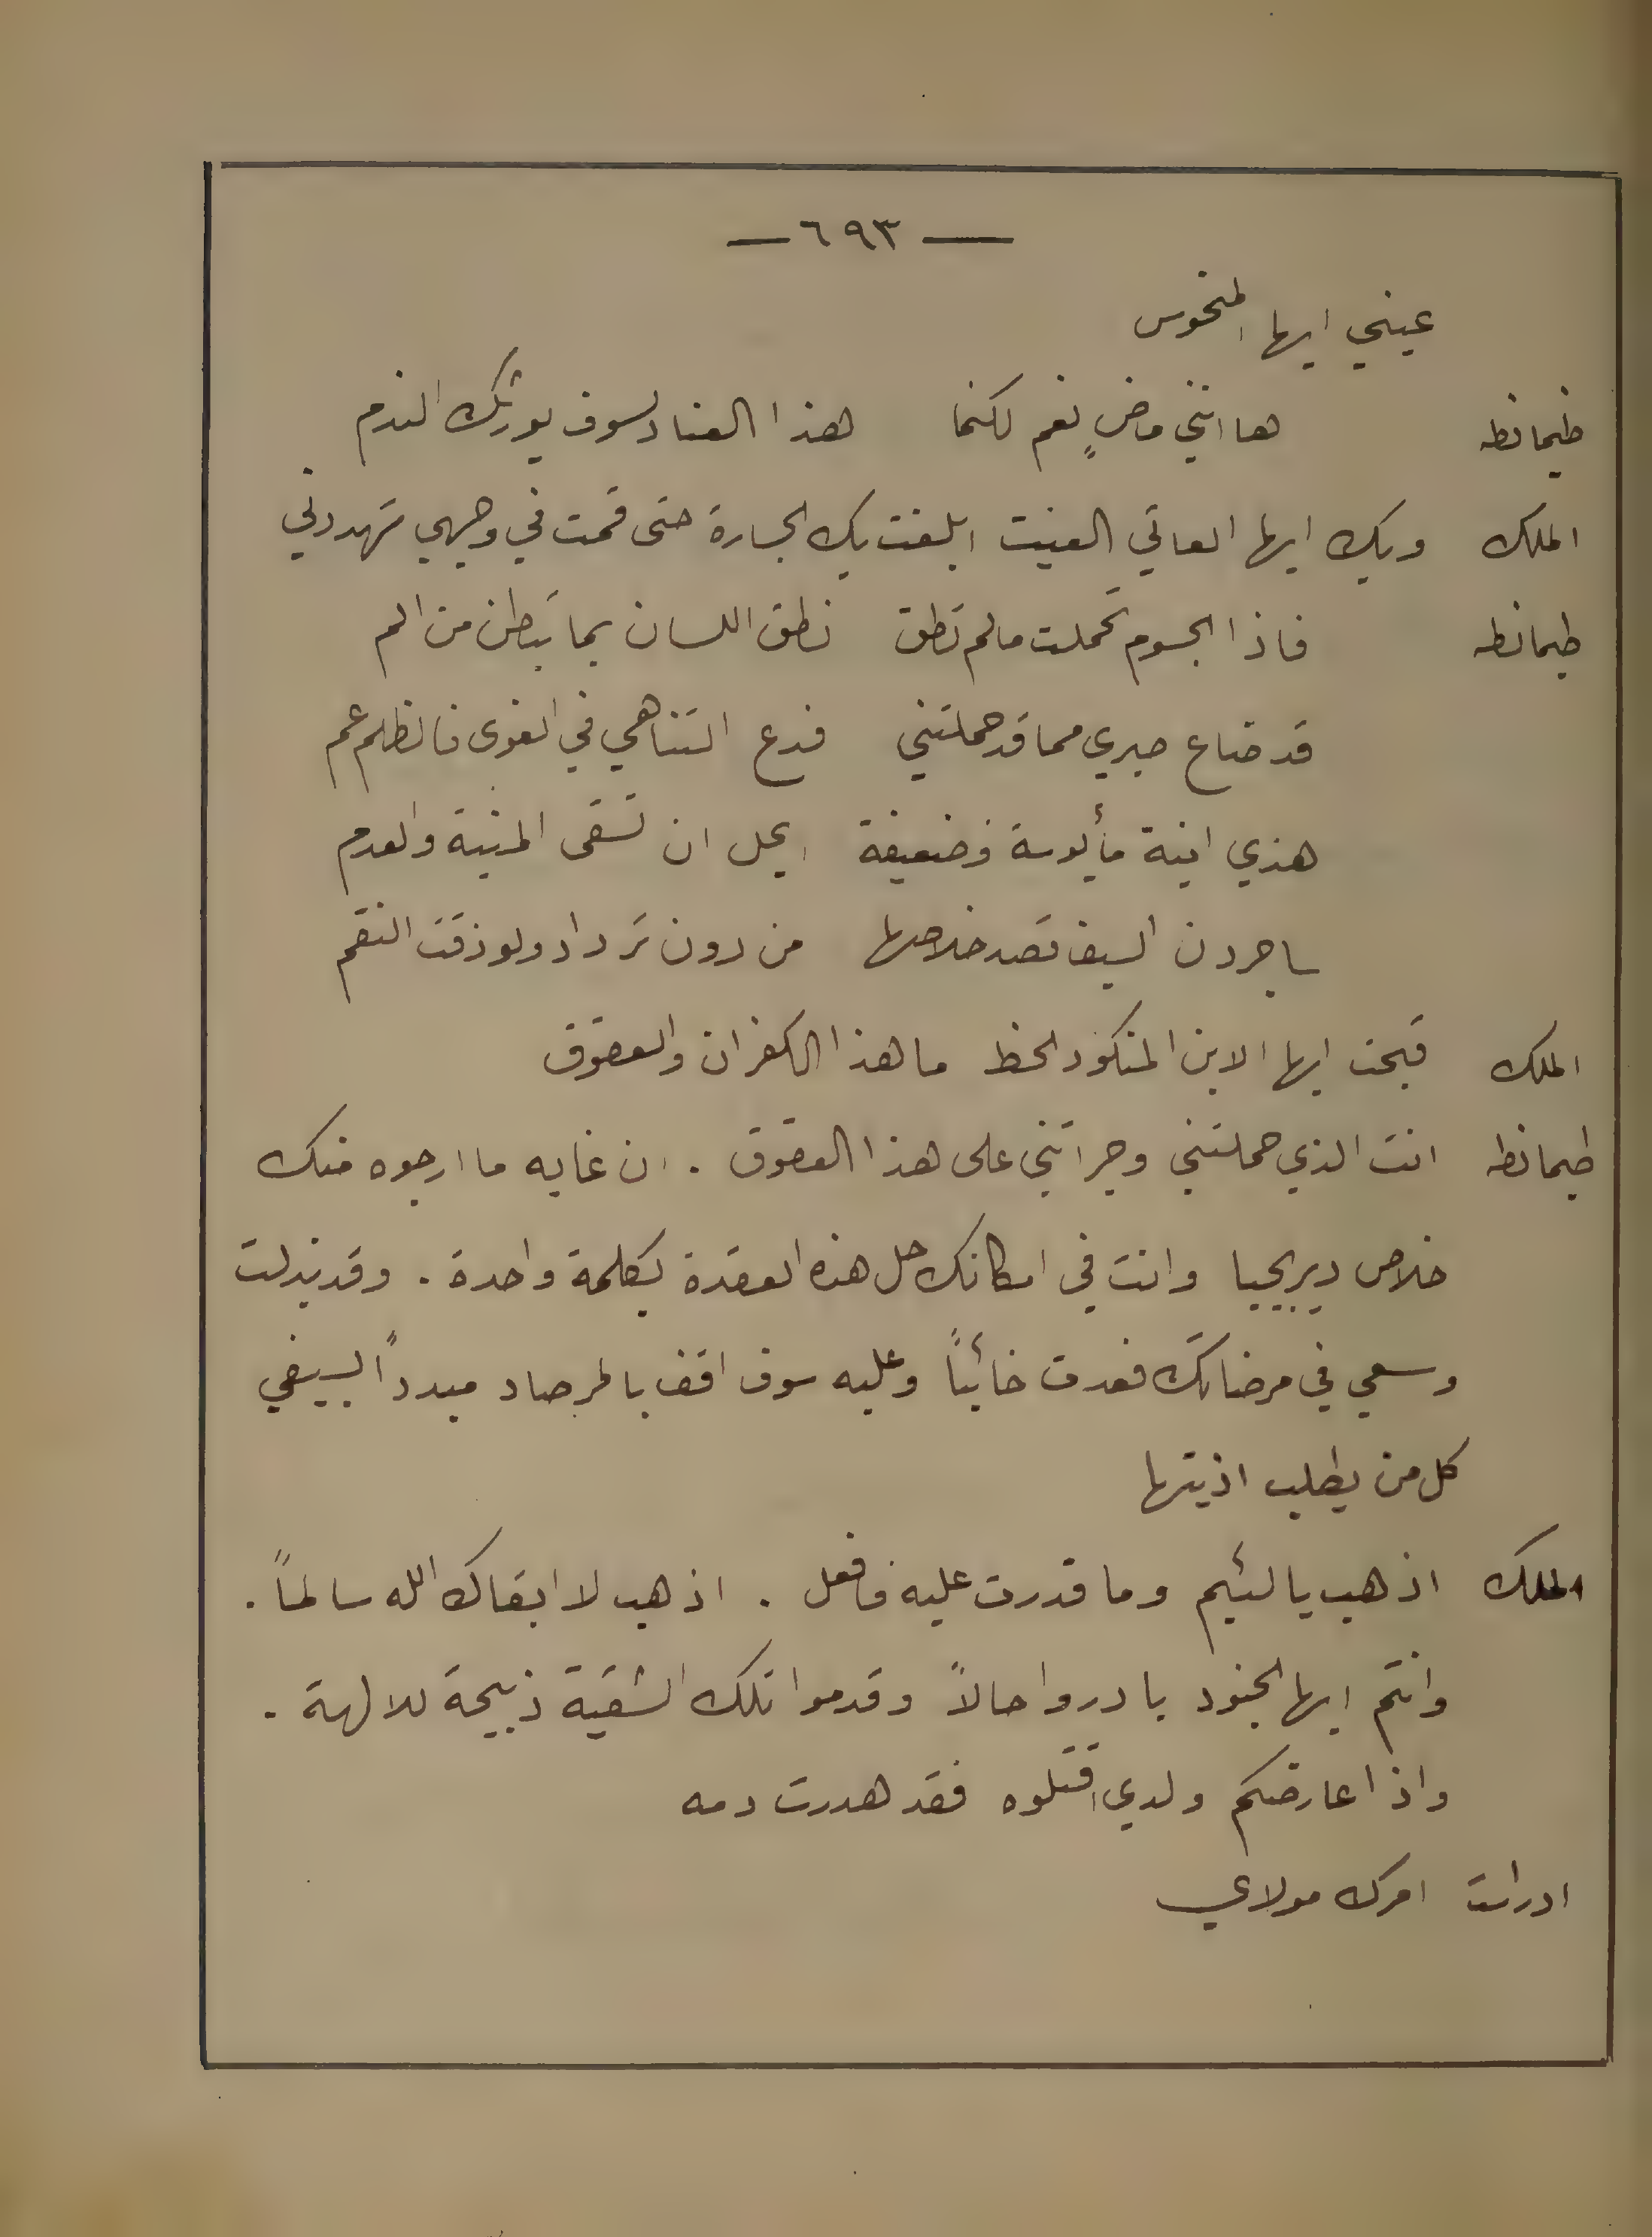 — ٦٩٣ —
عيني ايها المنحوس
طيمانطه هاانني ماضٍ نعم لكنما هذا العناد لسوف يورثك الندم
الملك ويك ايها العاتي العنيت ابلغت بك الجسارة حتى قمت في وجهي تهددني
طيمانطه فاذا الجسوم تحملت مالم تطق نطق اللسان بما تبطن من الم
قد ضاع صبري مما قد حملتني فدع التناهي في الغوى فالظلم عم
هذي ابنة مأيوسة وضعيفة ايحل ان تسقى المنية والعدم
ساجردن السيف قصد خلاصها من دون ترداد ولو ذقت النقم
الملك قبحت ايها الابن المنكود الحظ ما هذا الكفران والعقوق
طيمانطه انت الذي حملتني وجراتني على هذا العقوق . ان غايه ما ارجوه منك
خلاص ديريجيا وانت في امكانك حل هذه العقدة بكلمة واحدة . وقد بذلت
وسعي في مرضاتك فعدت خائباً وعليه سوف اقف بالمرصاد مبدداً بسيفي
كل من يطلب اذيتها
الملك اذهب يا لئيم وما قدرت عليه فافعل . اذهب لا ابقاك الله سالماً .
وانتم ايها الجنود بادروا حالاً وقدموا تلك الشقية ذبيحة للالهة .
واذا عارضكم ولدي اقتلوه فقد هدرت دمه
ادراست امرك مولاي